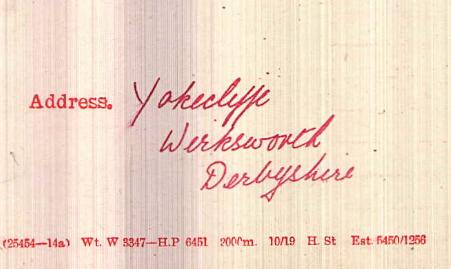 Address. Yokeclyffe
Werksworth
Derbyshire
(25454—14a) Wt. W 3347—H.P 6451 2000m. 10/19 H. St Est. 5450/1256